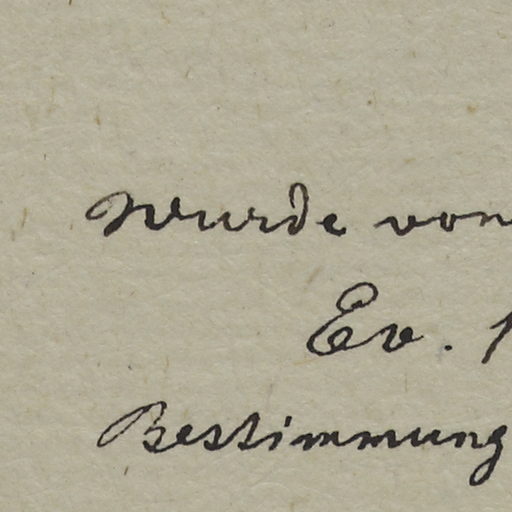 Wurde von
Ev.
Bestimmung